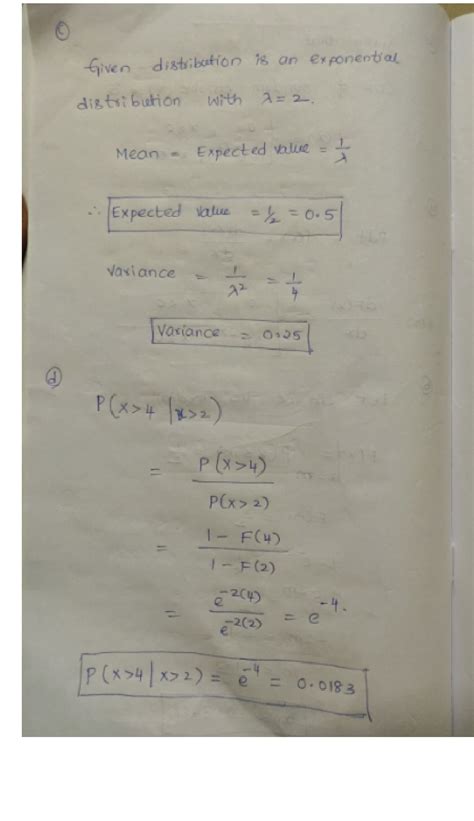 (c)
Given distribution is an exponential
distribution with λ = 2.
Mean = Expected value = 1/λ
∴ Expected value = 1/2 = 0.5
Variance = 1/λ² = 1/4
Variance = 0.25
(d)
P(x>4 | x>2)
= P(x>4) / P(x>2)
= 1 - F(4) / 1 - F(2)
= e^-2(4) / e^-2(2) = e^-4.
P(x>4 | x>2) = e^-4 = 0.0183